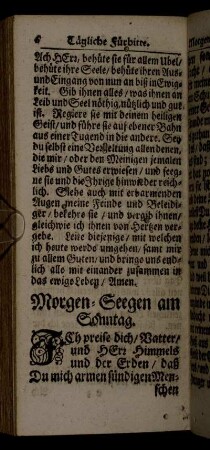 6 Tägliche Fürbitte.
Ach HErr, behüte sie für allem Ubel/
behüte ihre Seele/ behüte ihren Aus-
und Eingang von nun an biß in Ewig-
keit. Gib ihnen alles/ was ihnen an
Leib und Seel nöthig, nützlich und gut
ist. Regiere sie mit deinem heiligen
Geist, und führe sie auf ebener Bahn
aus einer Tugend in die andere. Sey
du selbst eine Vergeltung allen denen,
die mir/ oder den Meinigen jemalen
Liebs und Gutes erwiesen/ und seeg-
ne sie und die Ihrige hinwider reich-
lich. Siehe auch mit erbarmenden
Augen meine Feinde und Beleidi-
ger/ bekehre sie/ und vergib ihnen/
gleichwie ich ihnen von Hertzen verge-
be. Leite diejenige/ mit welchen
ich heute werde umgehen/ samt mir
zu allem Guten/ und bringe uns end-
lich alle mit einander zusammen in
das ewige Leben/ Amen.
Morgen-Seegen am
Sonntag.
ICh preise dich/ Vatter/
und HErr Himmels
und der Erden/ daß
Du mich armen sündigen Men-
schen